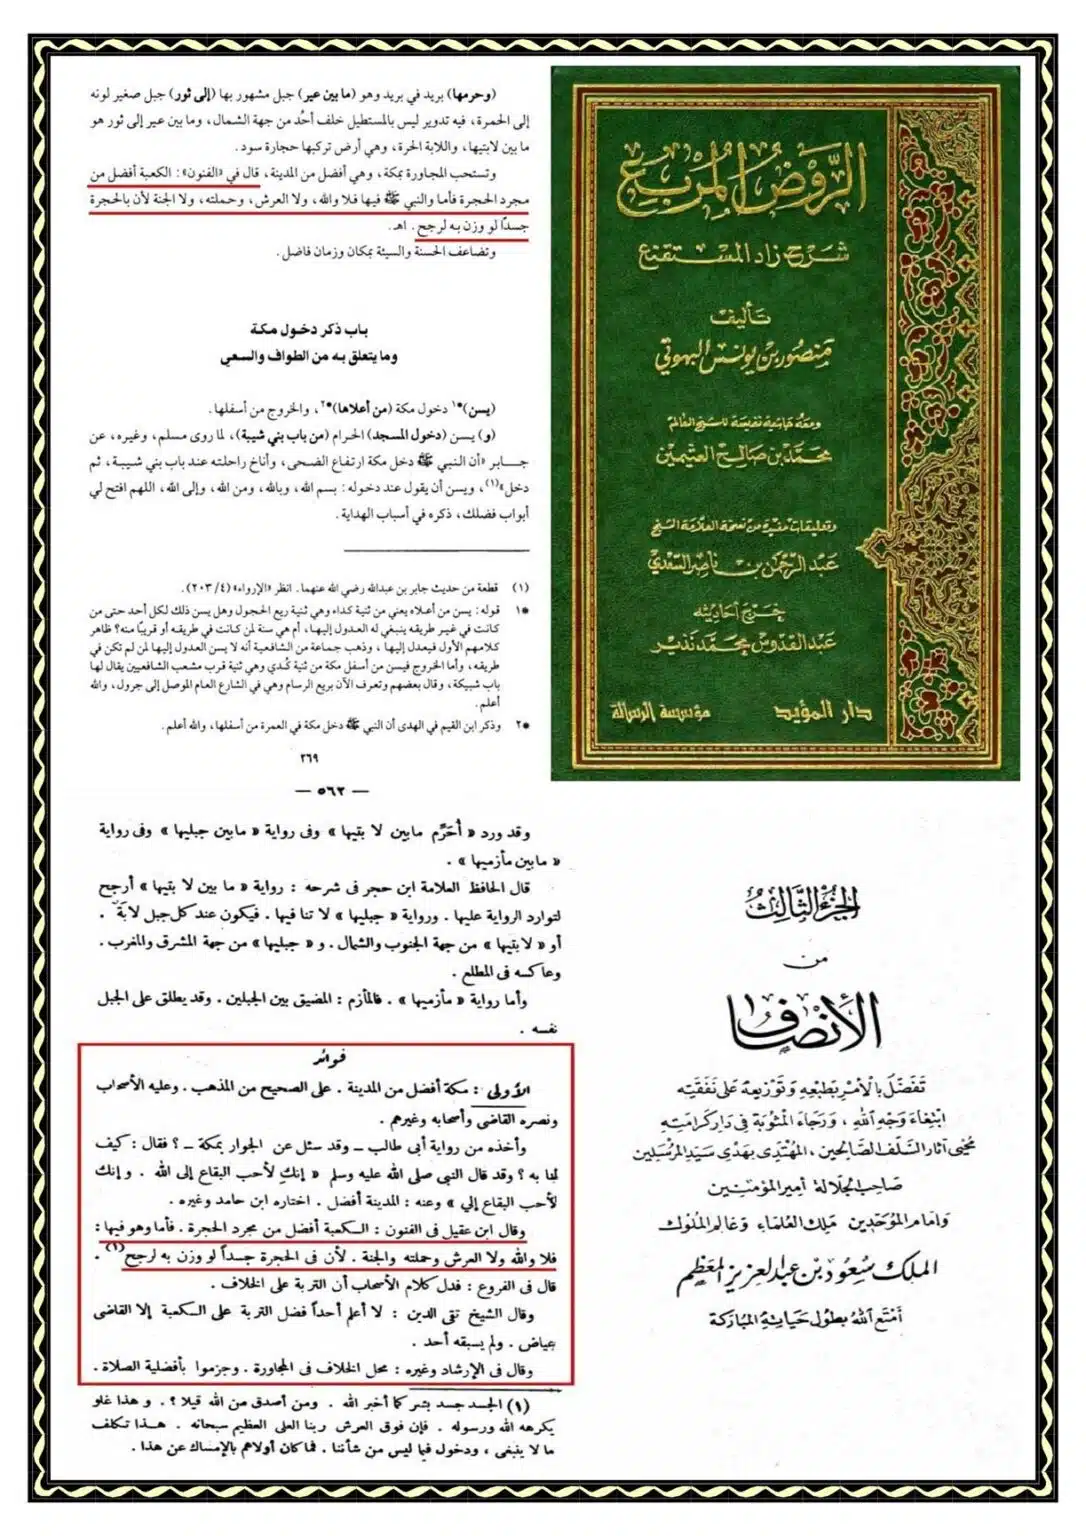 (وحرمها) بريد في بريد وهو (ما بين عير) جبل مشهور بها (إلى ثور) جبل صغير لونه
إلى الحمرة، فيه تدوير ليس بالمستطيل خلف أحُد من جهة الشمال، وما بين عير إلى ثور هو
ما بين لابتيها، واللابة الحرة، وهي أرض تركبها حجارة سود.
وتستحب المجاورة بمكة، وهي أفضل من المدينة، قال في «الفنون»: الكعبة أفضل من
مجرد الحجرة فأما والنبي ﷺ فيها فلا والله، ولا العرش، وحملته، ولا الجنة لأن بالحجرة
جسدًا لو وزن به لرجح. اهـ.
وتضاعف الحسنة والسيئة بمكان وزمان فاضل.
باب ذكر دخول مكة
وما يتعلق به من الطواف والسعي
(يسن)*١ دخول مكة (من أعلاها)*٢، والخروج من أسفلها.
(و) يسن (دخول المسجد) الحرام (من باب بني شيبة)، لما روى مسلم، وغيره، عن
جابر «أن النبي ﷺ دخل مكة ارتفاع الضحى، وأناخ راحلته عند باب بني شيبة، ثم
دخل»(١)، ويسن أن يقول عند دخوله: بسم الله، وبالله، ومن الله، وإلى الله، اللهم افتح لي
أبواب فضلك، ذكره في أسباب الهداية.
(١) قطعة من حديث جابر بن عبدالله رضي الله عنهما. انظر «الإرواء» (٢٠٣/٤).
*١ قوله: يسن من أعلاه يعني من ثنية كداء وهي ثنية ريع الحجول وهل يسن ذلك لكل أحد حتى من
كانت في غير طريقه ينبغي له العدول إليها، أم هي سنة لمن كانت في طريقه أو قريبًا منه؟ ظاهر
كلامهم الأول فيعدل إليها، وذهب جماعة من الشافعية أنه لا يسن العدول إليها لمن لم تكن في
طريقه، وأما الخروج فيسن من أسفل مكة من ثنية كُدي وهي ثنية قرب مشعب الشافعيين يقال لها
باب شبيكة، وقال بعضهم وتعرف الآن بريع الرسام وهي في الشارع العام الموصل إلى جرول، والله
أعلم.
*٢ وذكر ابن القيم في الهدى أن النبي ﷺ دخل مكة في العمرة من أسفلها، والله أعلم.
٢٦٩
الروض المربع
شرح زاد المستقنع
تأليف
منصور بن يونس البهوتي
ومعه حاشية نفيسة للشيخ العالم
محمد بن صالح العثيمين
وتعليقات مفيدة من نسخة العلامة الشيخ
عبد الرحمن بن ناصر السعدي
خرج أحاديثه
عبد القدوس محمد نذير
دار المؤيد مؤسسة الرسالة
— ٥٦٢ —
وقد ورد « أُحَرِّم مابين لا بتيها » وفى رواية « مابين جبليها » وفى رواية
« مابين مأزميها » .
قال الحافظ العلامة ابن حجر فى شرحه : رواية « ما بين لا بتيها » أرجح
لتوارد الرواية عليها . ورواية « جبليها » لا تنافيها . فيكون عند كل جبل لابَة .
أو « لابتيها » من جهة الجنوب والشمال . و « جبليها » من جهة المشرق والمغرب .
وعاكسه فى المطلع .
وأما رواية « مأزميها » . فالمأزم : المضيق بين الجبلين . وقد يطلق على الجبل
نفسه .
فوائد
الأولى : مكة أفضل من المدينة . على الصحيح من المذهب . وعليه الأصحاب
ونصره القاضى وأصحابه وغيرهم .
وأخذه من رواية أبى طالب – وقد سئل عن الجوار بمكة – ؟ فقال : كيف
لنا به ؟ وقد قال النبى صلى الله عليه وسلم « إنكِ لأحب البقاع إلى الله . وإنك
لأحب البقاع إلي » وعنه : المدينة أفضل . اختاره ابن حامد وغيره .
وقال ابن عقيل فى الفنون : الكعبة أفضل من مجرد الحجرة . فأما وهو فيها :
فلا والله ولا العرش وحملته والجنة . لأن فى الحجرة جسداً لو وزن به لرجح(١) .
قال فى الفروع : فدل كلام الأصحاب أن التربة على الخلاف .
وقال الشيخ تقى الدين : لا أعلم أحداً فضل التربة على الكعبة إلا القاضى
عياض . ولم يسبقه أحد .
وقال فى الإرشاد وغيره : محل الخلاف فى المجاورة . وجزموا بأفضلية الصلاة .
(١) الجسد جسد بشر كما أخبر الله . ومن أصدق من الله قيلا ؟ . وهذا غلو
يكرهه الله ورسوله . فإن فوق العرش ربنا العلى العظيم سبحانه . هذا تكلف
ما لا ينبغى ، ودخول فيما ليس من شأننا . فما كان أولاهم بالإمساك عن هذا .
الجزء الثالث
من
الأنصاف
تفضل بالأمر بطبعه وتوزيعه على نفقته
ابتغاء وجه الله ، ورجاء المثوبة فى دار كرامته
محيى آثار السلف الصالحين ، المهتدى بهدى سيد المرسلين
صاحب الجلالة أمير المؤمنين
وإمام الموحدين ملك العلماء وعالم الملوك
الملك سعود بن عبد العزيز المعظم
أمتع الله بطول حياته المباركة